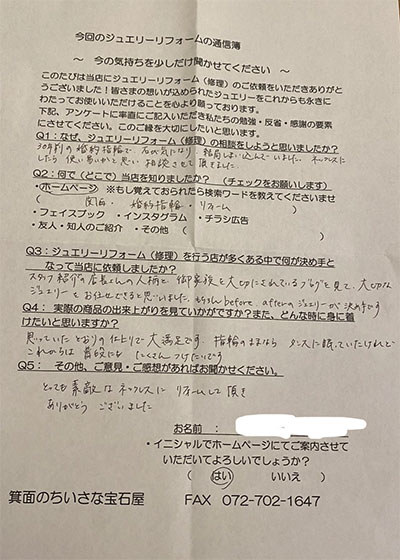 今回のジュエリーリフォームの通信簿
～ 今の気持ちを少しだけ聞かせてください ～
このたびは当店にジュエリーリフォーム（修理）のご依頼をいただきありがと
うございました！皆さまの想いが込められたジュエリーをこれからも永きに
わたってお使いいただけることを心より願っております。
下記、アンケートに率直にご記入いただき私たちの勉強・反省・感謝の要素
にさせてください。このご縁を大切にしたいと思います。
Q1：なぜ、ジュエリーリフォーム（修理）の相談をしようと思いましたか？
30年前の婚約指輪で、石が気になり、結局しまい込んでいました。ネックレスに
したら使い易いかと思い相談させて頂きました。
Q2：何で（どこで）当店を知りましたか？ （チェックをお願いします）
・ホームページ ※もし覚えておられたら検索ワードを教えてくださいませ
（ 箕面・婚約指輪・リフォーム ）
・フェイスブック ・インスタグラム ・チラシ広告
・友人・知人のご紹介 ・その他（ ）
Q3：ジュエリーリフォーム（修理）を行う店が多くある中で何が決め手と
なって当店に依頼しましたか？
スタッフ紹介の店長さんの人柄と御家族を大切にされているブログを見て、大切な
ジュエリーをお任せできると思いました。もちろんbefore、afterのジュエリーが決め手です
Q4： 実際の商品の出来上がりを見ていかがですか？また、どんな時に身に着
けたいと思いますか？
思っていたとおりの仕上りで大満足です。指輪のままならタンスに眠っていたけれど
これからは普段にもたくさんつけたいです
Q5： その他、ご意見・ご感想があればお聞かせください。
とっても素敵なネックレスにリフォームして頂き
ありがとうございました
お名前：
・イニシャルでホームページにてご案内させて
いただいてよろしいでしょうか？
（ はい いいえ ）
箕面のちいさな宝石屋 FAX 072-702-1647